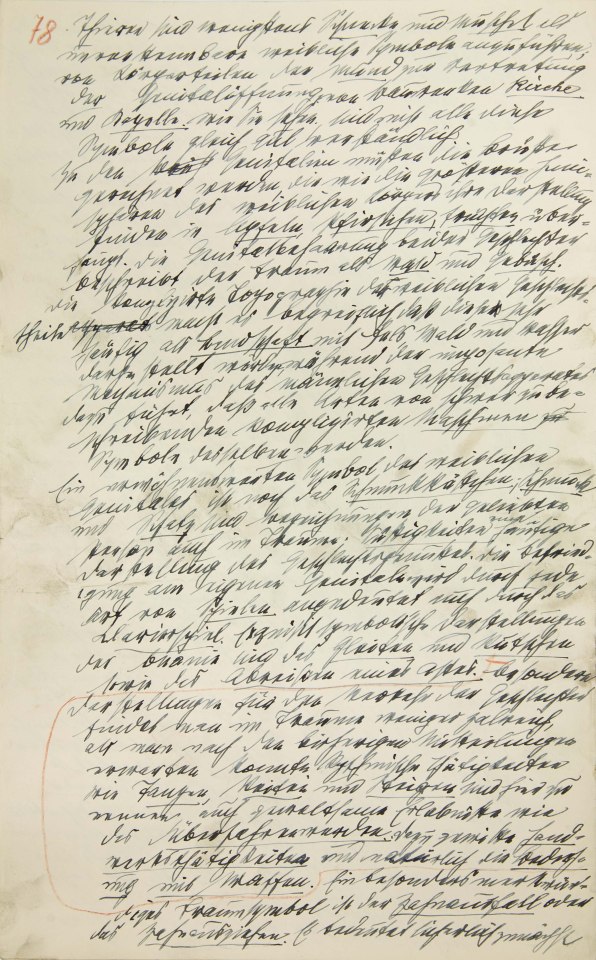 78
Thieren sind wenigstens Schnecke und Muschel als
unverkennbare weibliche Symbole anzuführen,
von Körperteilen der Mund zur Vertretung
der Genitalöffnung, von Bauwerken Kirche
und Kapelle. Wie Sie sehen, sind nicht alle diese
Symbole gleich gut verständlich.
Zu den Genitalien müssen die Brüste
gerechnet werden, die wie die größeren Hemi-
sphären des weiblichen Körpers ihre Darstellung
finden in Äpfeln, Pfirsichen, Früchten über-
haupt. Die Genitalbehaarung beider Geschlechter
beschreibt der Traum als Wald und Gebüsch.
Die komplizirte Topographie der weiblichen Geschlechts-
theile macht es begreiflich, daß diese sehr
häufig als Landschaft mit Fels, Wald und Wasser
dargestellt werden, während der imposante
Mechanismus des männlichen Geschlechtsapparates
dazu führt, daß alle Arten von schwer zu be-
schreibenden komplizirten Maschinen
Symbole desselben werden.
Ein erwähnenswertes Symbol des weiblichen
Genitales ist noch das Schmuckkästchen, Schmuck
und Schatz sind Bezeichnungen der geliebten
Person auch im Traume; Süßigkeiten häufige
Darstellung des Geschlechtsgenusses. Die Befriedi-
gung am eigenen Genitale wird durch jede
Art von Spielen angedeutet, auch durch das
Klavierspiel. Exquisit symbolische Darstellungen
der Onanie sind das Gleiten und Rutschen
sowie das Abreißen eines Astes. Besondere
Darstellungen für den Verkehr der Geschlechter
findet man im Traume weniger zalreich,
als man nach den bisherigen Mitteilungen
erwarten konnte. Rythmische Thätigkeiten
wie Tanzen, Reiten und Steigen sind hier zu
nennen, auch gewaltsame Erlebnisse wie
das Überfahrenwerden. Dazu gewisse Hand-
werksthätigkeiten und natürlich die Bedroh-
ung mit Waffen. Ein besonders merkwür-
diges Traumsymbol ist der Zahnausfall oder
das Zahnausziehen. Es bedeutet sicherlich zunächst